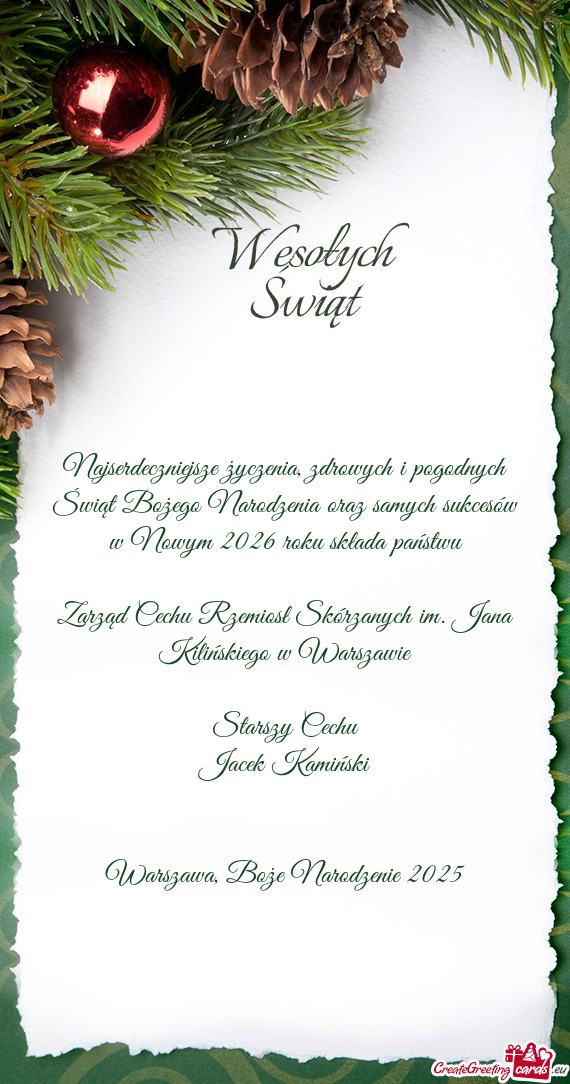 Wesołych
Świąt
Najserdeczniejsze życzenia, zdrowych i pogodnych
Świąt Bożego Narodzenia oraz samych sukcesów
w Nowym 2026 roku składa państwu
Zarząd Cechu Rzemiosł Skórzanych im. Jana
Kilińskiego w Warszawie
Starszy Cechu
Jacek Kamiński
Warszawa, Boże Narodzenie 2025
CreateGreeting cards .eu